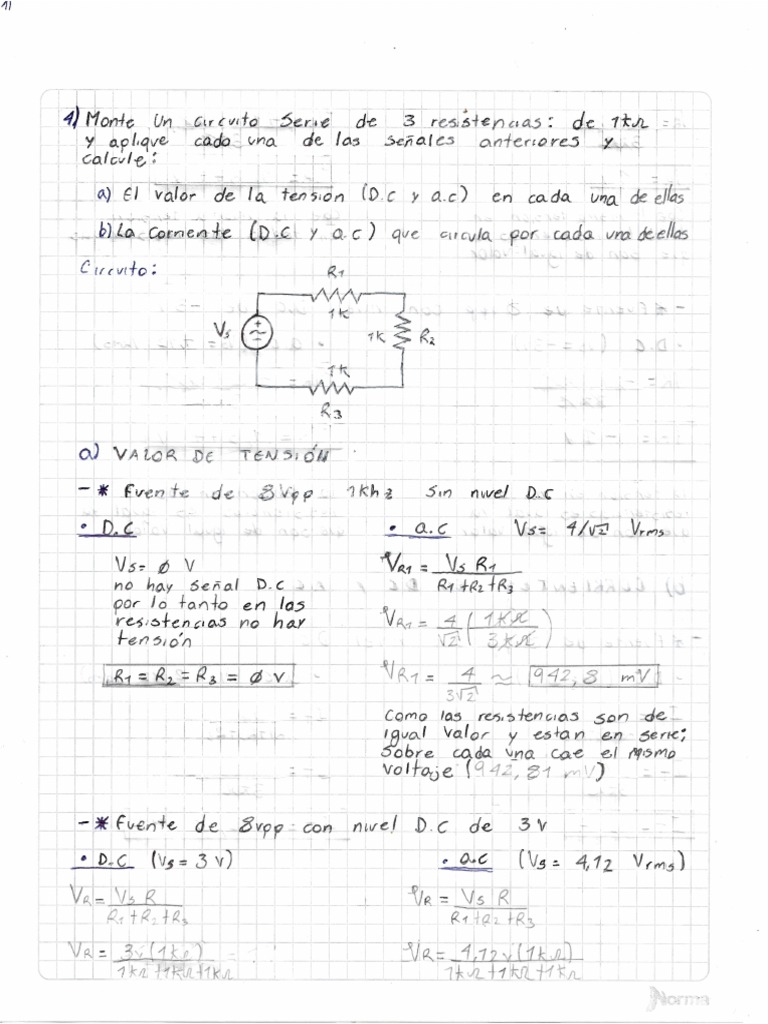 4) Monte un circuito serie de 3 resistencias: de 1kΩ
y aplique cada una de las señales anteriores y
calcule:
a) El valor de la tensión (D.C y a.c) en cada una de ellas
b) La corriente (D.C y a.c) que circula por cada una de ellas
Circuito:
R1
1K
Vs
1K
R2
1K
R3
a) VALOR DE TENSIÓN
- * Fuente de 8Vpp 1khz sin nivel D.C
• D.C
Vs= ø V
no hay señal D.C
por lo tanto en las
resistencias no hay
tensión
R1 = R2 = R3 = ø v
• a.c Vs= 4/√2 Vrms
VR1 = Vs R1 / R1+R2+R3
VR1 = 4/√2 (1kΩ / 3kΩ)
VR1 = 4 / 3√2 ≈ 942,8 mV
Como las resistencias son de
igual valor y estan en serie;
sobre cada una cae el mismo
voltaje (942,81 mV)
- * Fuente de 8vpp con nivel D.C de 3 v
• D.C (Vs = 3 v)
VR = Vs R / R1+R2+R3
VR = 3v(1kΩ) / 1kΩ+1kΩ+1kΩ
• a.c (Vs = 4,12 Vrms)
VR = Vs R / R1+R2+R3
VR = 4,12v(1kΩ) / 1kΩ+1kΩ+1kΩ
Norma